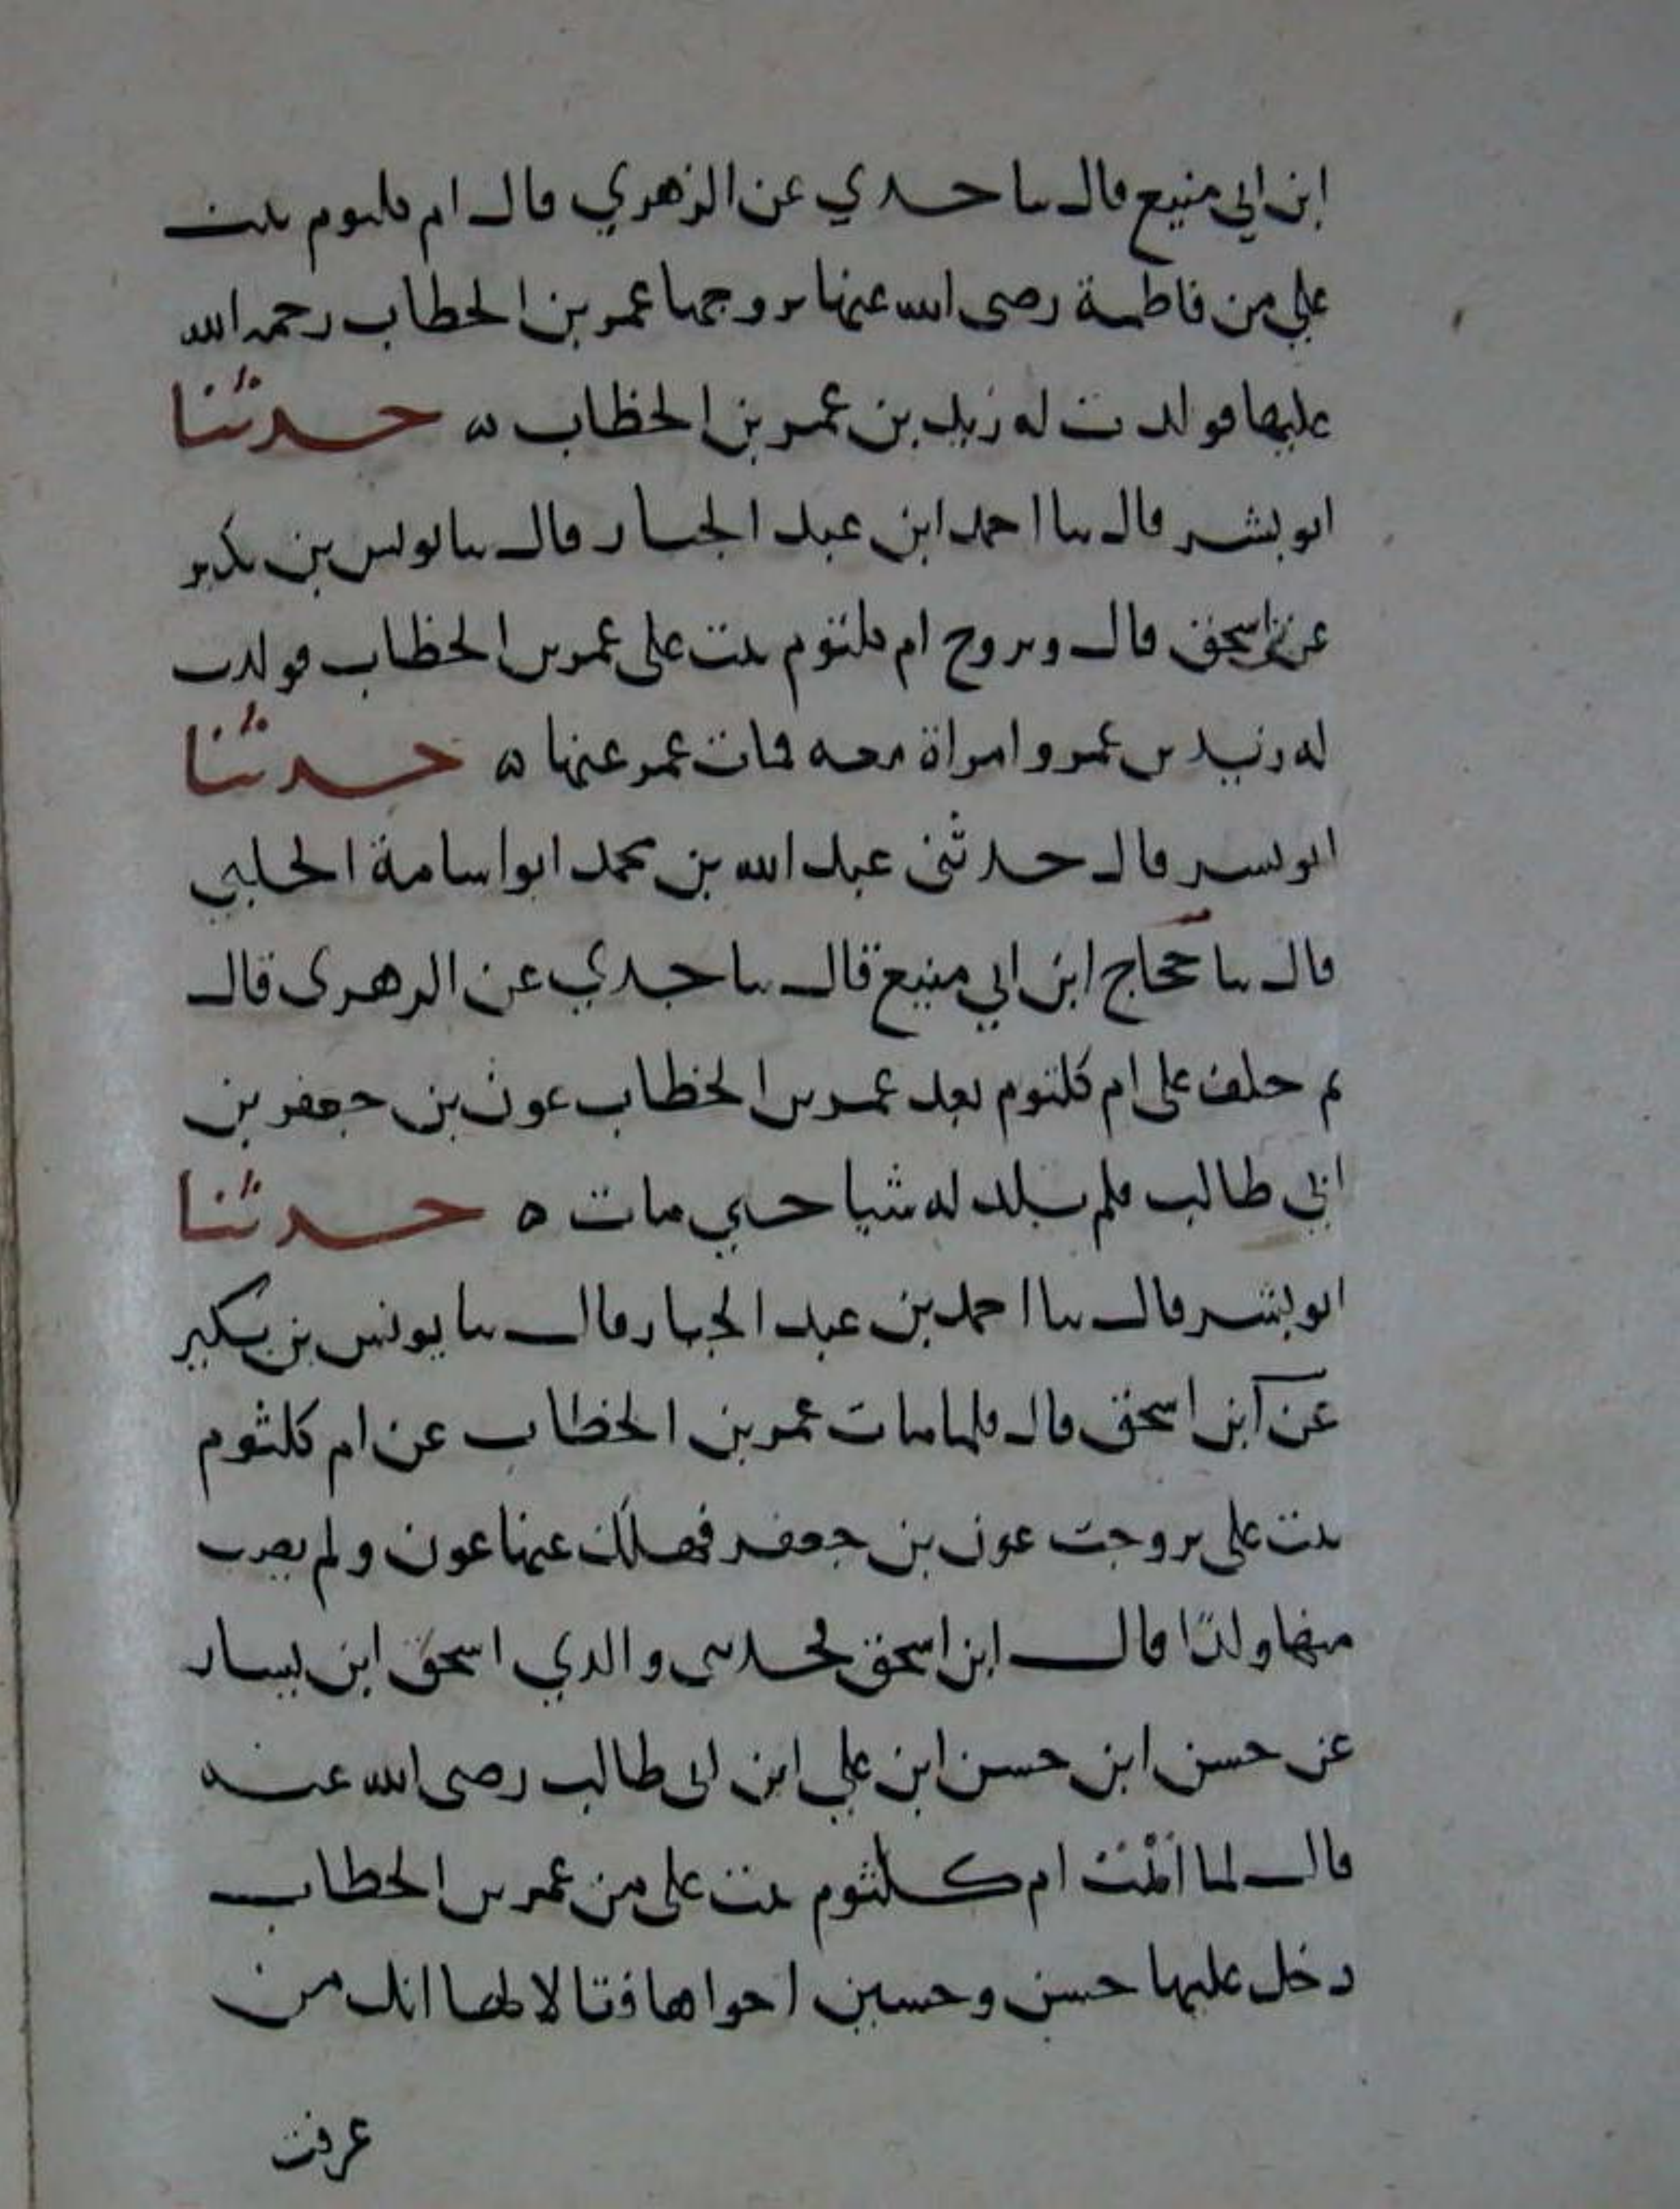 ابن ابي منيع قال سا جدي عن الزهري قال ام كلثوم بنت
علي من فاطمة رضى الله عنها تزوجها عمر بن الخطاب رحمه الله
عليها فولدت له زيد بن عمر بن الخطاب ه حدثنا
ابو بشر قال سا احمد ابن عبد الجبار قال سا يونس بن بكير
عن اسحق قال وتزوج ام كلثوم بنت على عمر بن الخطاب فولدت
له زيد بن عمر وامراة معه فمات عمر عنها ه حدثنا
ابو بشر قال حدثنى عبد الله بن محمد ابو اسامة الحلبي
قال سا حجاج ابن ابي منيع قال سا جدي عن الزهرى قال
ثم خلف على ام كلثوم بعد عمر بن الخطاب عون بن جعفر بن
ابى طالب فلم تلد له شيا حتي مات ه حدثنا
ابو بشر قال سا احمد بن عبد الجبار قال سا يونس بن بكير
عن ابن اسحق قال فلما مات عمر بن الخطاب عن ام كلثوم
بنت على تزوجت عون بن جعفر فهلك عنها عون ولم يصب
منها ولدا قال ابن اسحق فحدثنى والدي اسحق ابن يسار
عن حسن ابن حسن ابن علي ابن ابى طالب رضى الله عنه
قال لما ايمت ام كلثوم بنت على من عمر بن الخطاب
دخل عليها حسن وحسين اخواها فقالا لها انك من
عرفت